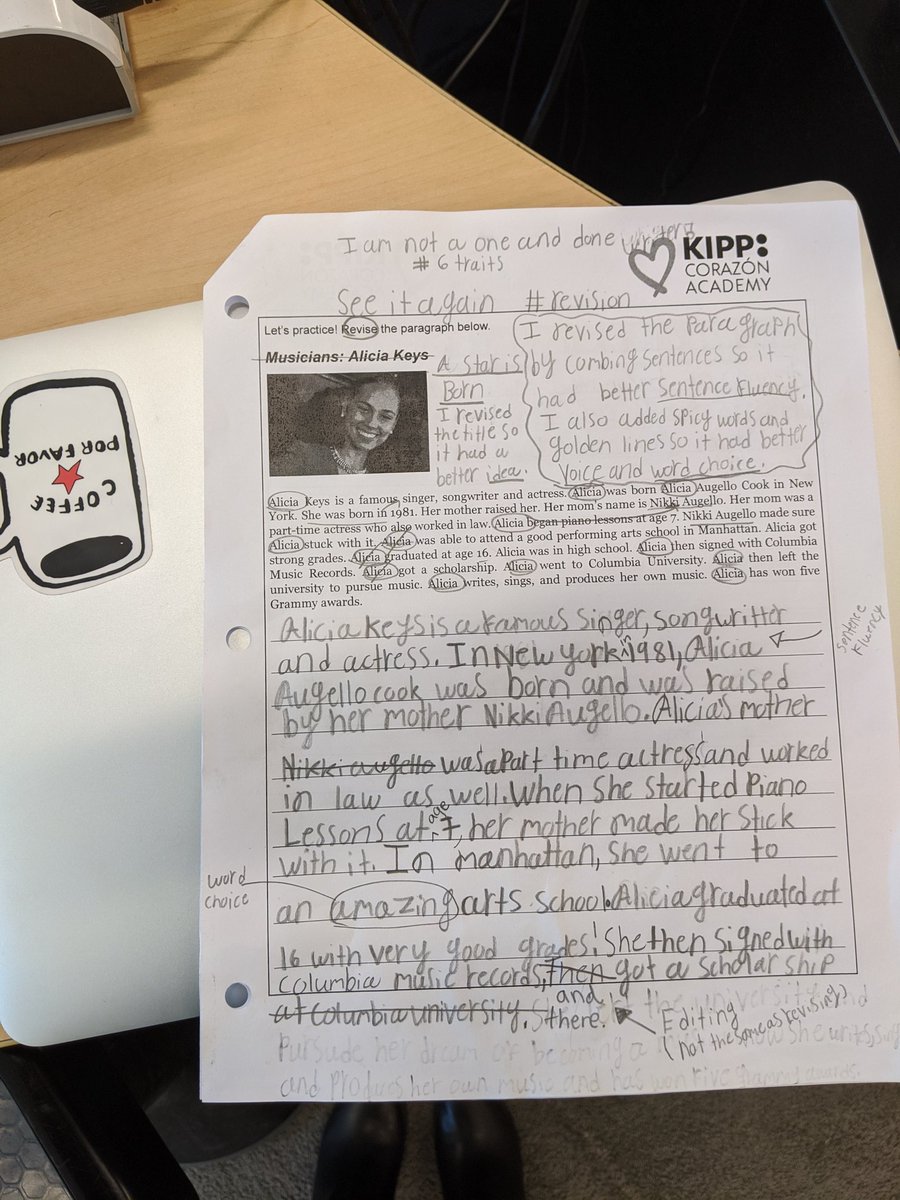 I am not a one and done writer
# 6 traits
KIPP:
CORAZÓN
ACADEMY
See it again #revision
Let's practice! Revise the paragraph below.
Musicians: Alicia Keys
A star is
Born
I revised
the title so
it had a
better idea.
I revised the paragraph
by combing sentences so it
had better sentence fluency.
I also added spicy words and
golden lines so it had better
voice and word choice.
Alicia Keys is a famous singer, songwriter and actress. Alicia was born Alicia Augello Cook in New
York. She was born in 1981. Her mother raised her. Her mom's name is Nikki Augello. Her mom was a
part-time actress who also worked in law. Alicia began piano lessons at age 7. Nikki Augello made sure
Alicia stuck with it. Alicia was able to attend a good performing arts school in Manhattan. Alicia got
strong grades. Alicia graduated at age 16. Alicia was in high school. Alicia then signed with Columbia
Music Records. Alicia got a scholarship. Alicia went to Columbia University. Alicia then left the
university to pursue music. Alicia writes, sings, and produces her own music. Alicia has won five
Grammy awards.
Alicia Keys is a famous singer, songwritter
and actress. In New york in 1981, Alicia
Augello cook was born and was raised
by her mother Nikki Augello. Alicia's mother
Nikki augello was a Part time actress and worked
in law as well. When She started Piano
Lessons at age 7, her mother made her stick
with it. In manhattan, She went to
an amazing arts school. Alicia graduated at
16 with very good grades! She then signed with
Columbia music records, then got a scholar ship
at Columbia university. and
there.
Pursude her dream of becoming a she writes, sing
and Produces her own music and has won five grammy awards.
sentence
fluency
word
choice
Editing
(not the same as revising)
COFFEE
POR FAVOR